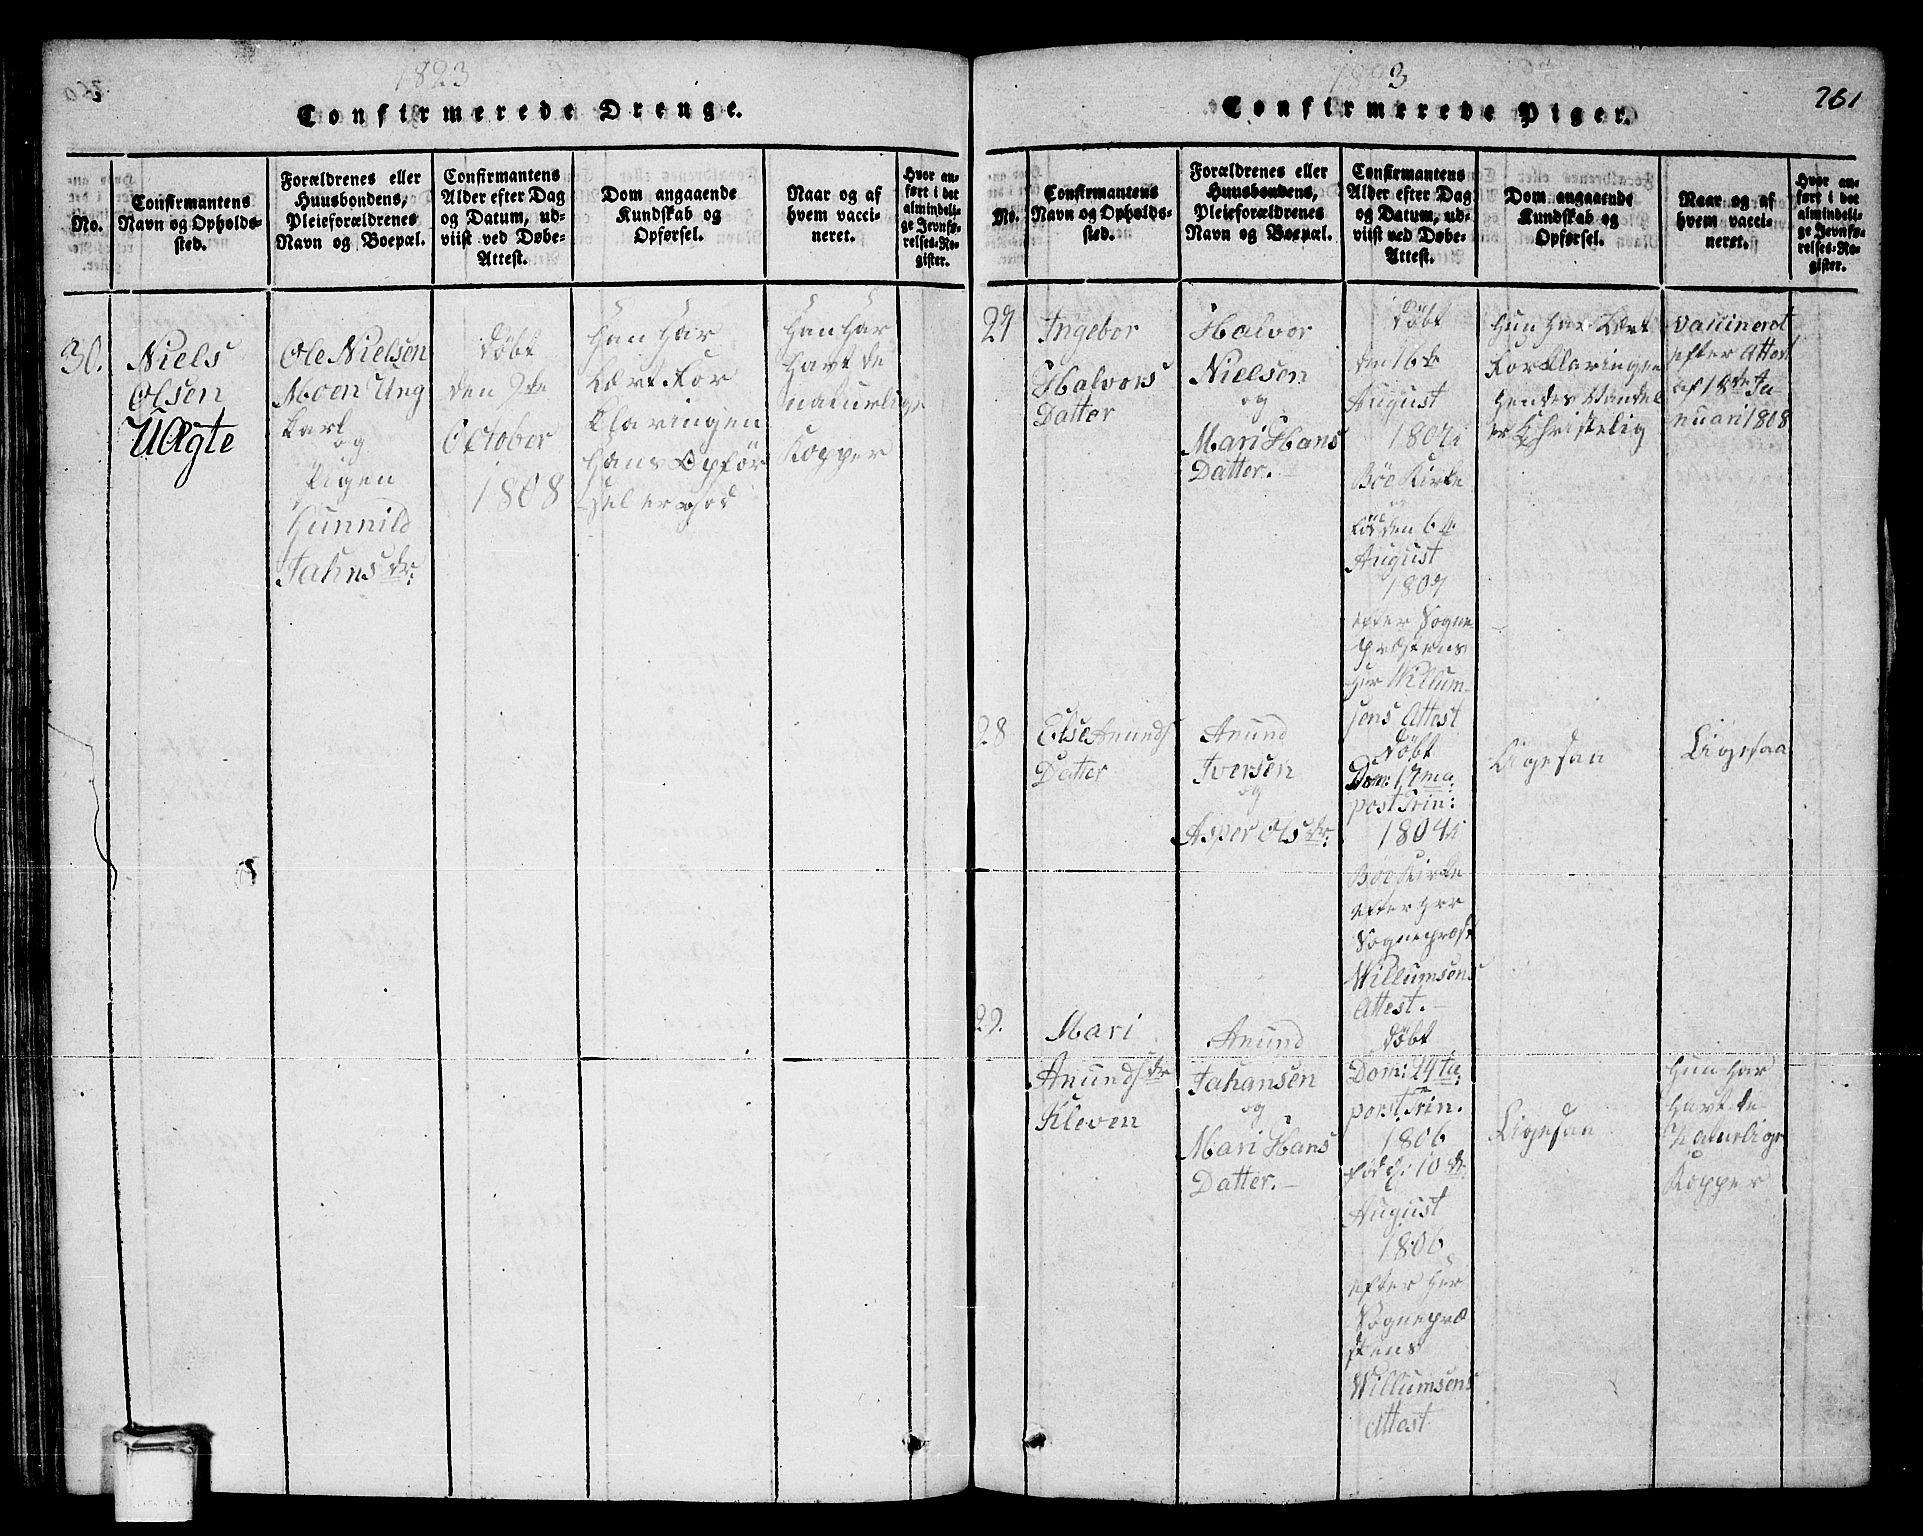 1823
Confirmerede Drenge.
No.
Confirmantens
Navn og Opholds-
sted.
Forældrenes eller
Huusbondens,
Pleieforældrenes
Navn og Boepæl.
Confirmantens
Alder efter Dag
og Datum, ud-
viist ved Døbe-
Attest.
Dom angaaende
Kundskab og
Opførsel.
Naar og af
hvem vacci-
neret.
Hvor an-
ført i det
almindeli-
ge Jevnfø-
relses-Re-
gister.
30.
Niels
Olsen
UÆgte
Ole Nielsen
Moen Ung
Karl
og
Pigen
Gunnild
Jahns dr:
Döbt
den 9de
October
1808
Han Har
Lært For
Klaringen
Hans Opför
sel er god
Han Har
Havt de
naturlige
Kopper
1823
261
Confirmerede Piger.
No.
Confirmantens
Navn og Opholds-
sted.
Forældrenes eller
Huusbondens,
Pleieforældrenes
Navn og Boepæl.
Confirmantens
Alder efter Dag
og Datum, ud-
viist ved Døbe-
Attest.
Dom angaaende
Kundskab og
Opførsel.
Naar og af
hvem vacci-
neret.
Hvor an-
ført i det
almindeli-
ge Jevnfø-
relses-Re-
gister.
27
Ingebor
Halvors
Datter
Halvor
Nielsen
og
Mari Hans
Datter.
Döbt
den 16de
August
1807 i
Böe Kirke
og
född den 6te
August
1807
efter Sogne
Præstens
Her Willum-
sens Attest
Hun Har Lært
Forklaringen
Hendes Vandel
er Christelig
Vaccineret
efter Attest
af 18de Ja
nuari 1808
28
Else Anunds
Datter
Anund
Iversen
og
Asper Ols dr:
Döbt
Dom: 17ma:
post Trin:
1804 i
Böe Kirke
efter Herr
Sognepræst
Willumsens
Attest.
Ligesaa
Ligesaa
29.
Mari
Anunds dr
Kleven
Anund
Jahansen
og
Mari Hans
Datter.
Döbt
Dom: 24ta:
post Trin.
1806
född d: 10 de
August
1806
efter Her
Sognepræ
stens
Willumsens
Attest
Ligesaa
Hun Har
Havt de
Naturlige
Kopper